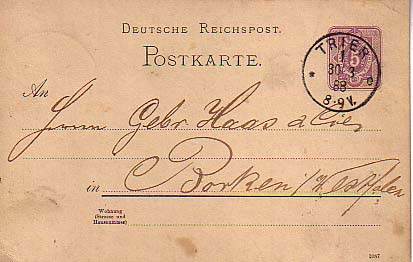 DEUTSCHE REICHSPOST.
POSTKARTE.
TRIER
1
30 3
88
8-9V.
* e
5
An
Herrn Gebr Haas &
in Borken i/Westfalen
Wohnung
(Strasse und
Hausnummer)